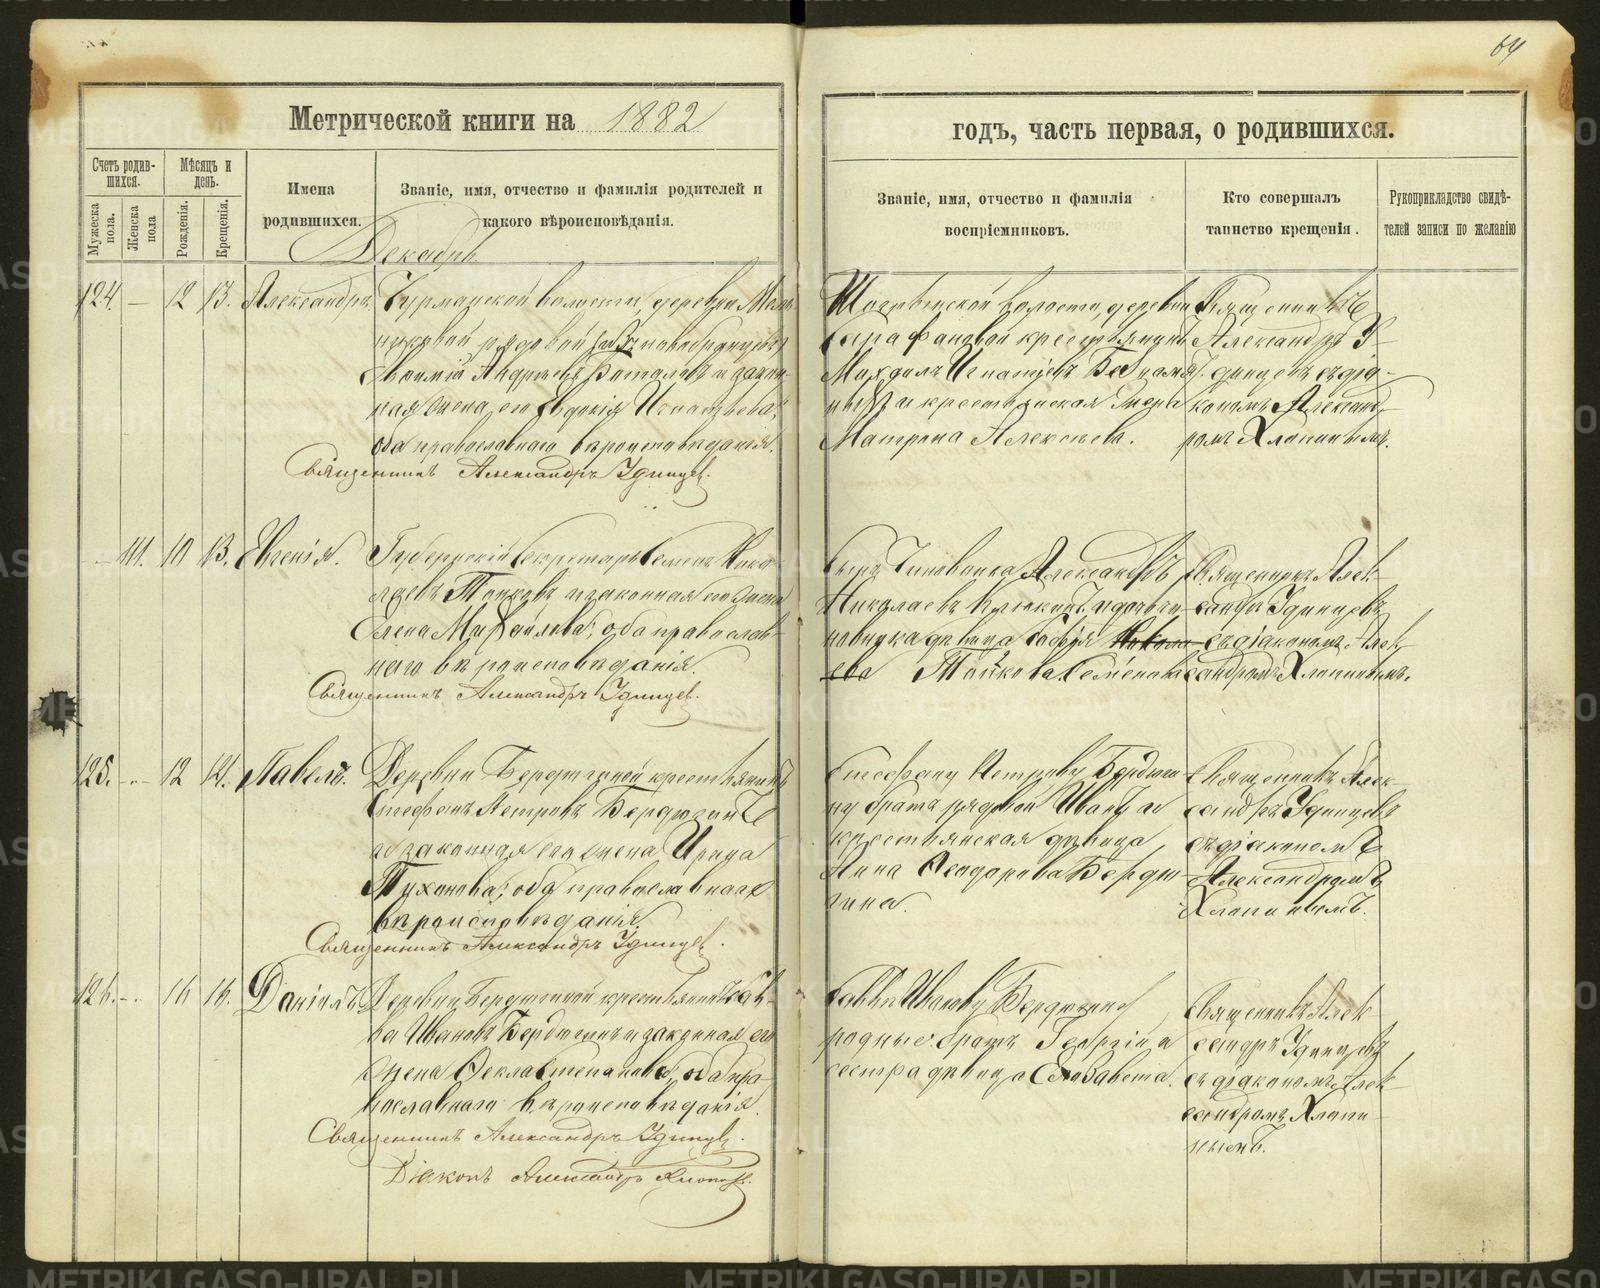 64
Метрической книги на 1882
годъ, часть первая, о родившихся.
Счетъ родив-
шихся.
Мѣсяцъ и
день.
Мужеска
пола.
Женска
пола
Рожденія.
Крещенія.
Имена
родившихся.
Званіе, имя, отчество и фамилія родителей и
какого вѣроисповѣданія.
Званіе, имя, отчество и фамилія
воспріемниковъ.
Кто совершалъ
таинство крещенія.
Рукоприкладство свидѣ-
телей записи по желанію
Декабрь
124. — 12 13. Александръ.
волости, деревни
рядовой
Андреевъ и закон-
ная жена его Евдокія Игнатьева,
оба православнаго вѣроисповѣданія.
Священникъ Александръ Удинцев.
волости, деревни
крестьянинъ
Михаилъ Игнатіевъ
и крестьянская жена
Матрона Алексѣева.
Священникъ
Александръ У-
динцевъ съ діа-
кономъ Александ-
ромъ Хлопинымъ.
111. 10 13. Евгенія.
Губернскій секретарь Семенъ Нико-
лаевъ Топковъ и законная его жена
Елена Михайлова, оба православ-
наго вѣроисповѣданія.
Священникъ Александръ Удинцев.
Сынъ Чиновника Александръ
Николаевъ и дочь чи-
новника дѣвица Софія
Семенова
Священникъ Алек-
сандръ Удинцевъ
съ діакономъ Алек-
сандромъ Хлопинымъ.
125. 12 14. Павелъ.
Деревни Бердюгиной крестьянинъ
Стефанъ Петровъ Бердюгинъ
и законная его жена Ирина
Тихонова, оба православнаго
вѣроисповѣданія.
Священникъ Александръ Удинцев.
Стефану Петрову Бердюги-
ну братъ рядовой Иванъ и
крестьянская дѣвица
Анна Феодорова Бердю-
гина.
Священникъ Алек-
сандръ Удинцевъ
съ діакономъ
Александромъ
Хлопинымъ.
126. 16 16. Даніилъ
Деревни Бердюгиной крестьянинъ Сав-
ва Ивановъ Бердюгинъ и законная его
жена Фекла Степанова, оба пра-
вославнаго вѣроисповѣданія.
Священникъ Александръ Удинцев.
Діаконъ Александръ Хлопин.
Саввы Иванову Бердюгину
родные: братъ Георгій и
сестра дѣвица Елизавета.
Священникъ Алек-
сандръ Удинцевъ
съ діакономъ Алек-
сандромъ Хлопи-
нымъ.
METRIKI.GASO-URAL.RU